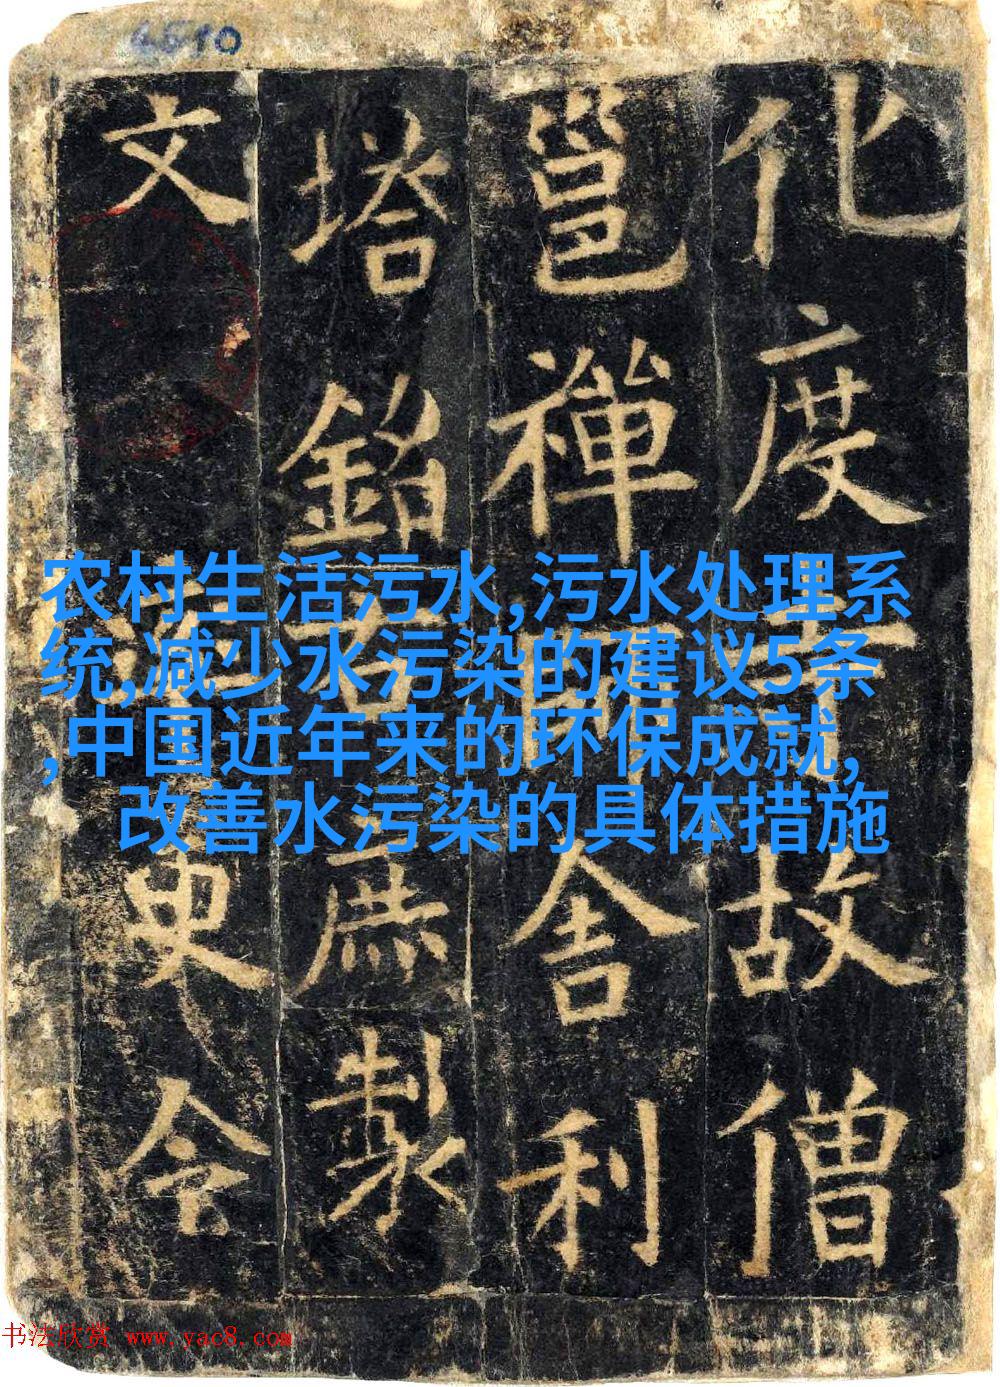 化度故僧
邕禪舍利
塔銘庶製
文更令
农村生活污水,污水处理系
统,减少水污染的建议5条
,中国近年来的环保成就,
改善水污染的具体措施
书法欣赏 www.yac8.com